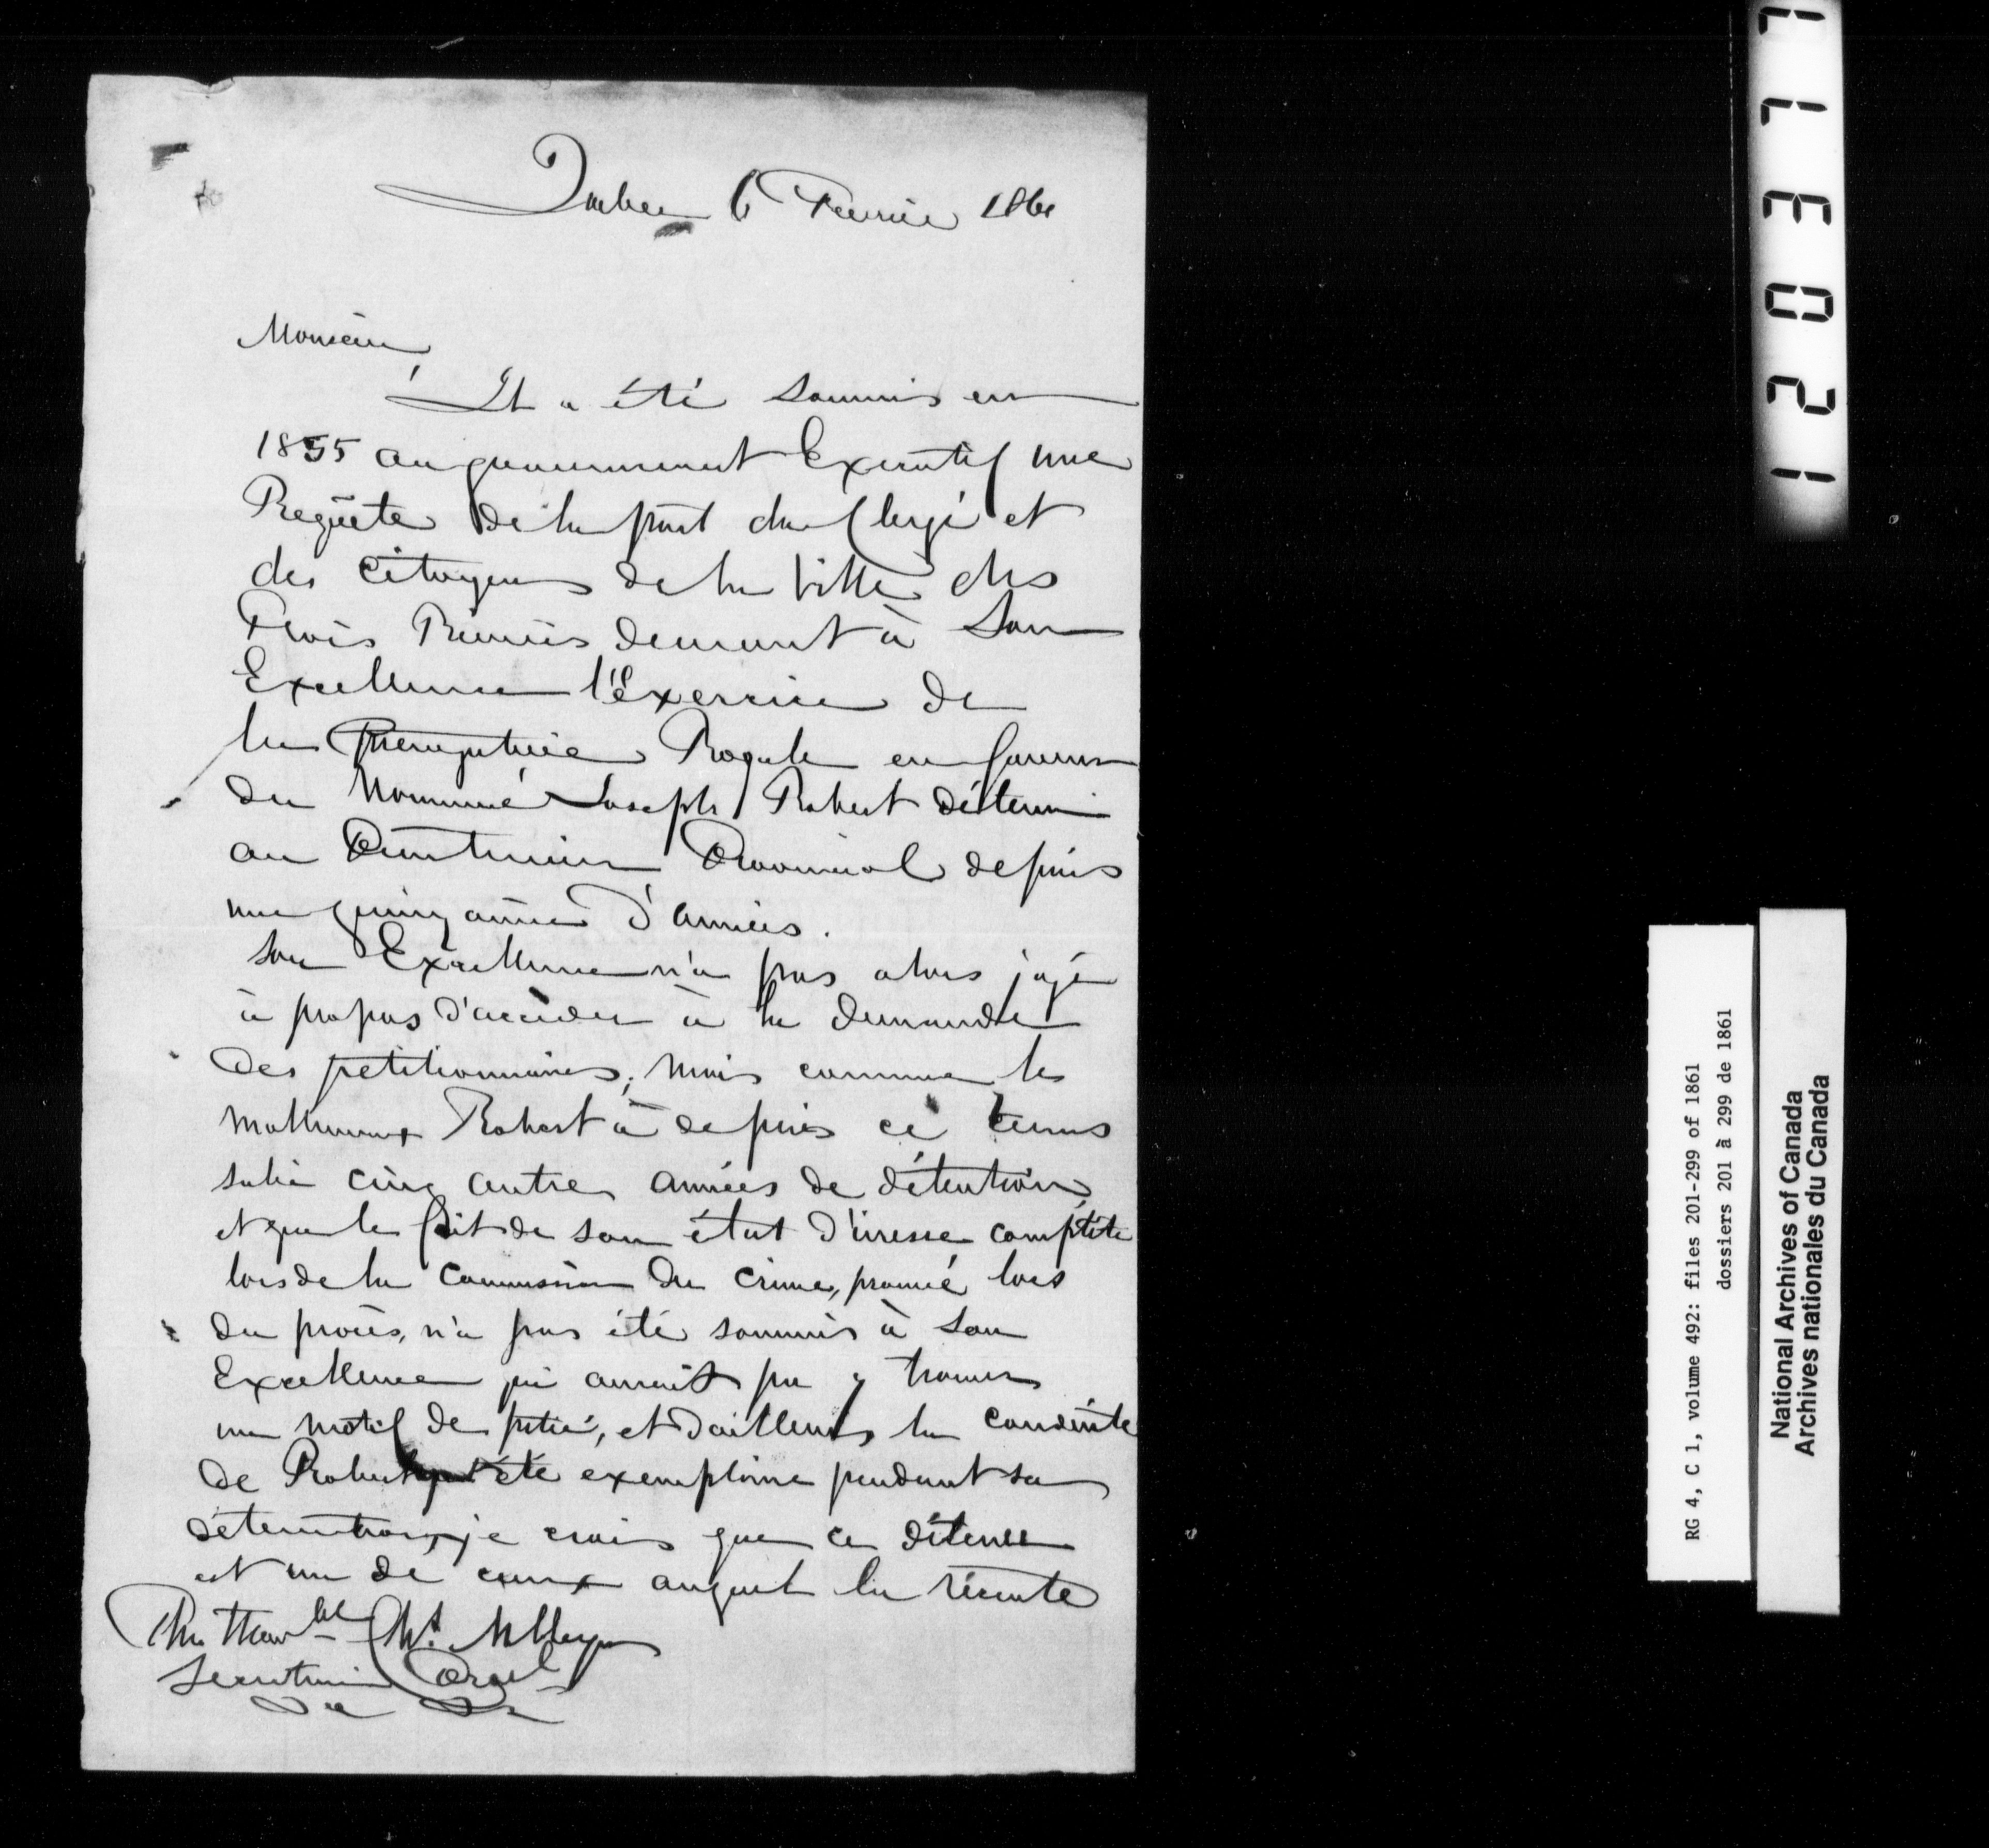 Quebec 6 Fevrier 1861
Monsieur
Il a été soumis en
1855 au gouvernement Executif une
Requête de la part du Clergé et
des citoyens de la Ville des
Trois Rivieres demant à Son
Excellence l'éxercice de
la Prerogative Royale en faveur
du Nommé Joseph Robert détenu
au Penitencier Provincial depuis
une quinzaine d'années.
Son Excellence n'a pas alors jugé
à propos d'acceder à la demande
des petitionnaires; mais comme le
malheureux Robert à depuis ce tems
subi cinq autre années de détention,
et que le fait de son état d'ivresse complète
lors de la commission du crime, prouvé lors
du procès, n'a pas été soumis à Son
Excellence qui aurait pu y trouver
un motif de pitié, et d'ailleurs la conduite
de Robert été exemplaire pendant sa
détention, je crois que ce détenu
est un de ceux auquel la récente
Hon^ble
Secretaire
&c &c
RG 4, C 1, volume 492: files 201-299 of 1861
dossiers 201 à 299 de 1861
National Archives of Canada
Archives nationales du Canada
120317